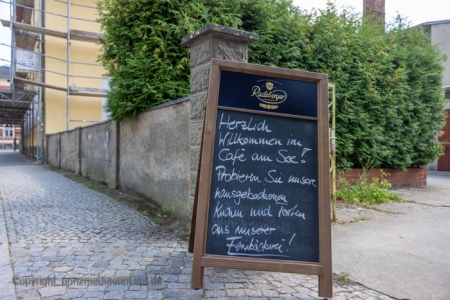 Radeberger
Herzlich
Willkommen im
Café am See!
Probieren Sie unsere
hausgebackenen
Kuchen und Torten
aus unserer
Feinbäckerei!